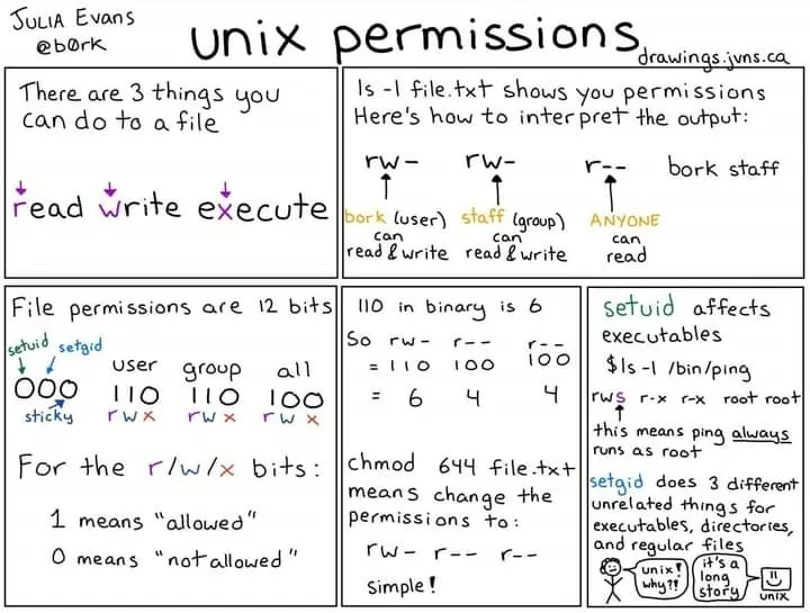 JULIA EVANS
@b0rk
unix permissions
drawings.jvns.ca
There are 3 things you
can do to a file
read write execute
ls -l file.txt shows you permissions
Here's how to interpret the output:
rw- rw- r-- bork staff
bork (user) staff (group) ANYONE
can can can
read & write read & write read
File permissions are 12 bits
setuid setgid
user group all
000 110 110 100
sticky rwx rwx rwx
For the r/w/x bits:
1 means "allowed"
0 means "not allowed"
110 in binary is 6
So rw- r-- r--
= 110 100 100
= 6 4 4
chmod 644 file.txt
means change the
permissions to:
rw- r-- r--
simple!
setuid affects
executables
$ls -l /bin/ping
rws r-x r-x root root
this means ping always
runs as root
setgid does 3 different
unrelated things for
executables, directories,
and regular files
unix!
why?!
it's a
long
story
unix